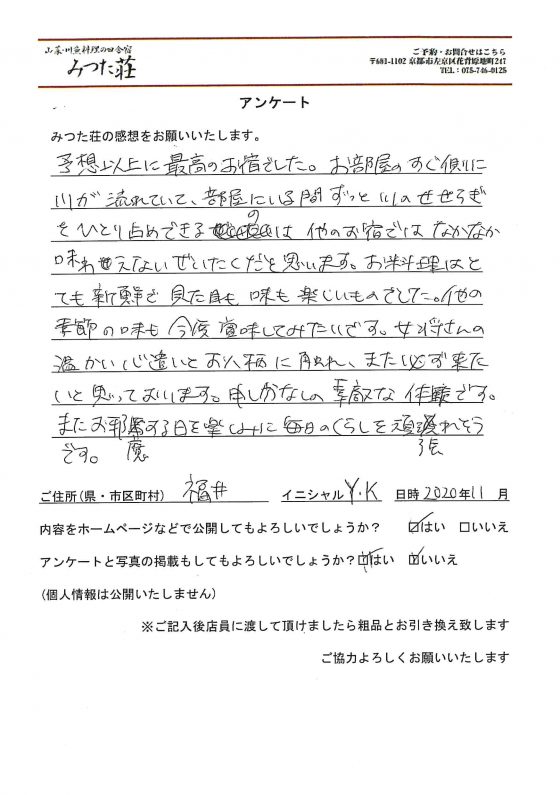 山菜・川魚料理の田舎宿
みつた荘
ご予約・お問合せはこちら
〒601-1102 京都市左京区花背原地町247
TEL：075-746-0125
アンケート
みつた荘の感想をお願いいたします。
予想以上に最高のお宿でした。お部屋のすぐ側に
川が流れていて、部屋にいる間ずっと川のせせらぎ
をひとり占めできるのは他のお宿ではなかなか
味わえないぜいたくだと思います。お料理はと
ても新鮮で見た目も味も楽しいものでした。他の
季節の味も今度賞味してみたいです。女将さんの
温かい心遣いとお人柄に触れ、また必ず来た
いと思っております。申し分なしの素敵な体験です。
またお邪魔する日を楽しみに毎日のくらしを頑張れそう
です。
ご住所(県・市区町村) 福井 イニシャル Y.K 日時 2020年11月
内容をホームページなどで公開してもよろしいでしょうか？ ☑はい □いいえ
アンケートと写真の掲載もしてもよろしいでしょうか？ ☑はい ☑いいえ
(個人情報は公開いたしません)
※ご記入後店員に渡して頂けましたら粗品とお引き換え致します
ご協力よろしくお願いいたします